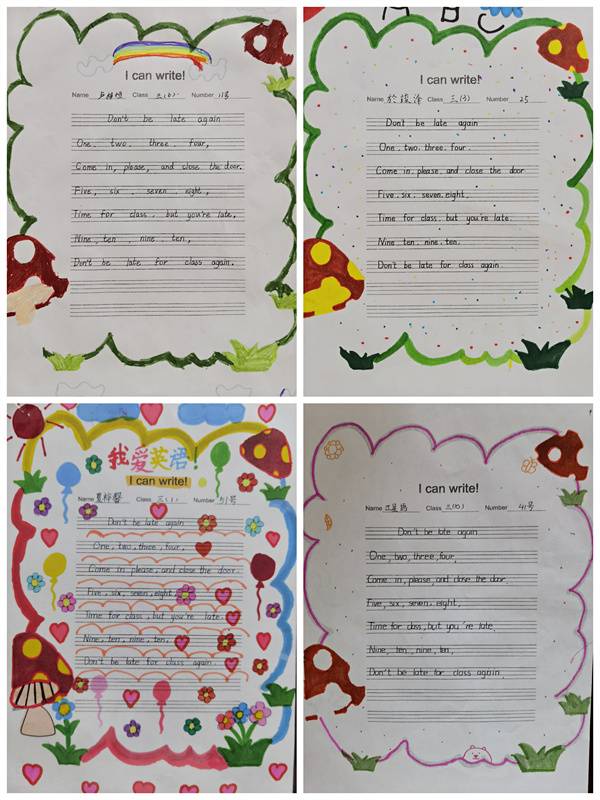 I can write!
Name Class 三(6) Number 11号
Don't be late again
One. two. three. four,
Come in, please, and close the door.
Five, six. seven. eight,
Time for class. but you're late,
Nine, ten, nine. ten,
Don't be late for class again.
A B C
I can write!
Name Class 三(3) Number 25
Don't be late again
One. two. three. four.
Come in. please. and close the door
Five. six. seven. eight.
Time for class. but you're late.
Nine. ten. nine. ten.
Don't be late for class again.
我爱英语!
I can write!
Name Class 三(1) Number 51号
Don't be late again
One, two, three, four.
Come in please, and close the door.
Five, six, seven, eight,
Time for class, but you're late.
Nine, ten, nine, ten,
Don't be late for class again.
I can write!
Name Class Number 41号
Don't be late again
One, two, three, four,
Come in, please, and close the door.
Five, six, seven, eight,
Time for class, but you're late,
Nine, ten, nine, ten,
Don't be late for class again